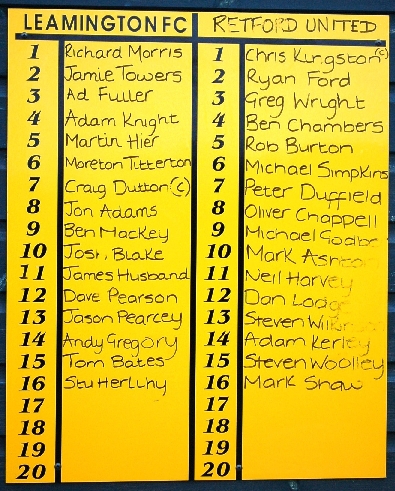 LEAMINGTON FC RETFORD UNITED
1 Richard Morris 1 Chris Kingston (c)
2 Jamie Towers 2 Ryan Ford
3 Ad Fuller 3 Greg Wright
4 Adam Knight 4 Ben Chambers
5 Martin Hier 5 Rob Burton
6 Moreton Titterton 6 Michael Simpkins
7 Craig Dutton (c) 7 Peter Duffield
8 Jon Adams 8 Oliver Chappell
9 Ben Mackey 9 Michael
10 Josh Blake 10 Mark
11 James Husband 11 Neil Harvey
12 Dave Pearson 12 Dan
13 Jason Pearcey 13 Steven
14 Andy Gregory 14 Adam
15 Tom Bates 15 Steven Woolley
16 Stu Herlihy 16 Mark Shaw
17 17
18 18
19 19
20 20